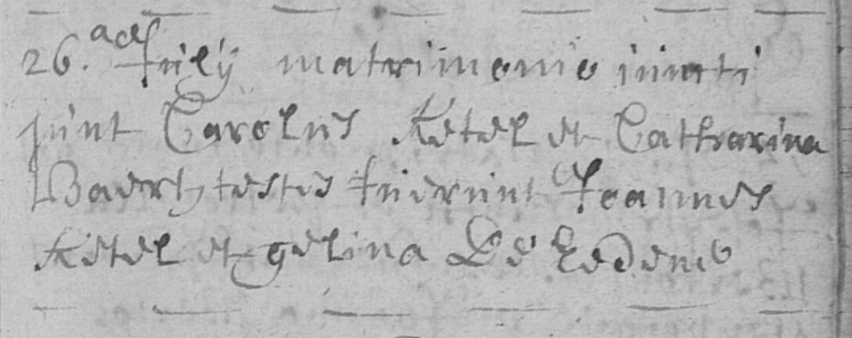 26. July matrimonio iuncti
sunt Carolus Ketel et Catharina
Baert testes fuerunt Joannes
Ketel et gelina De